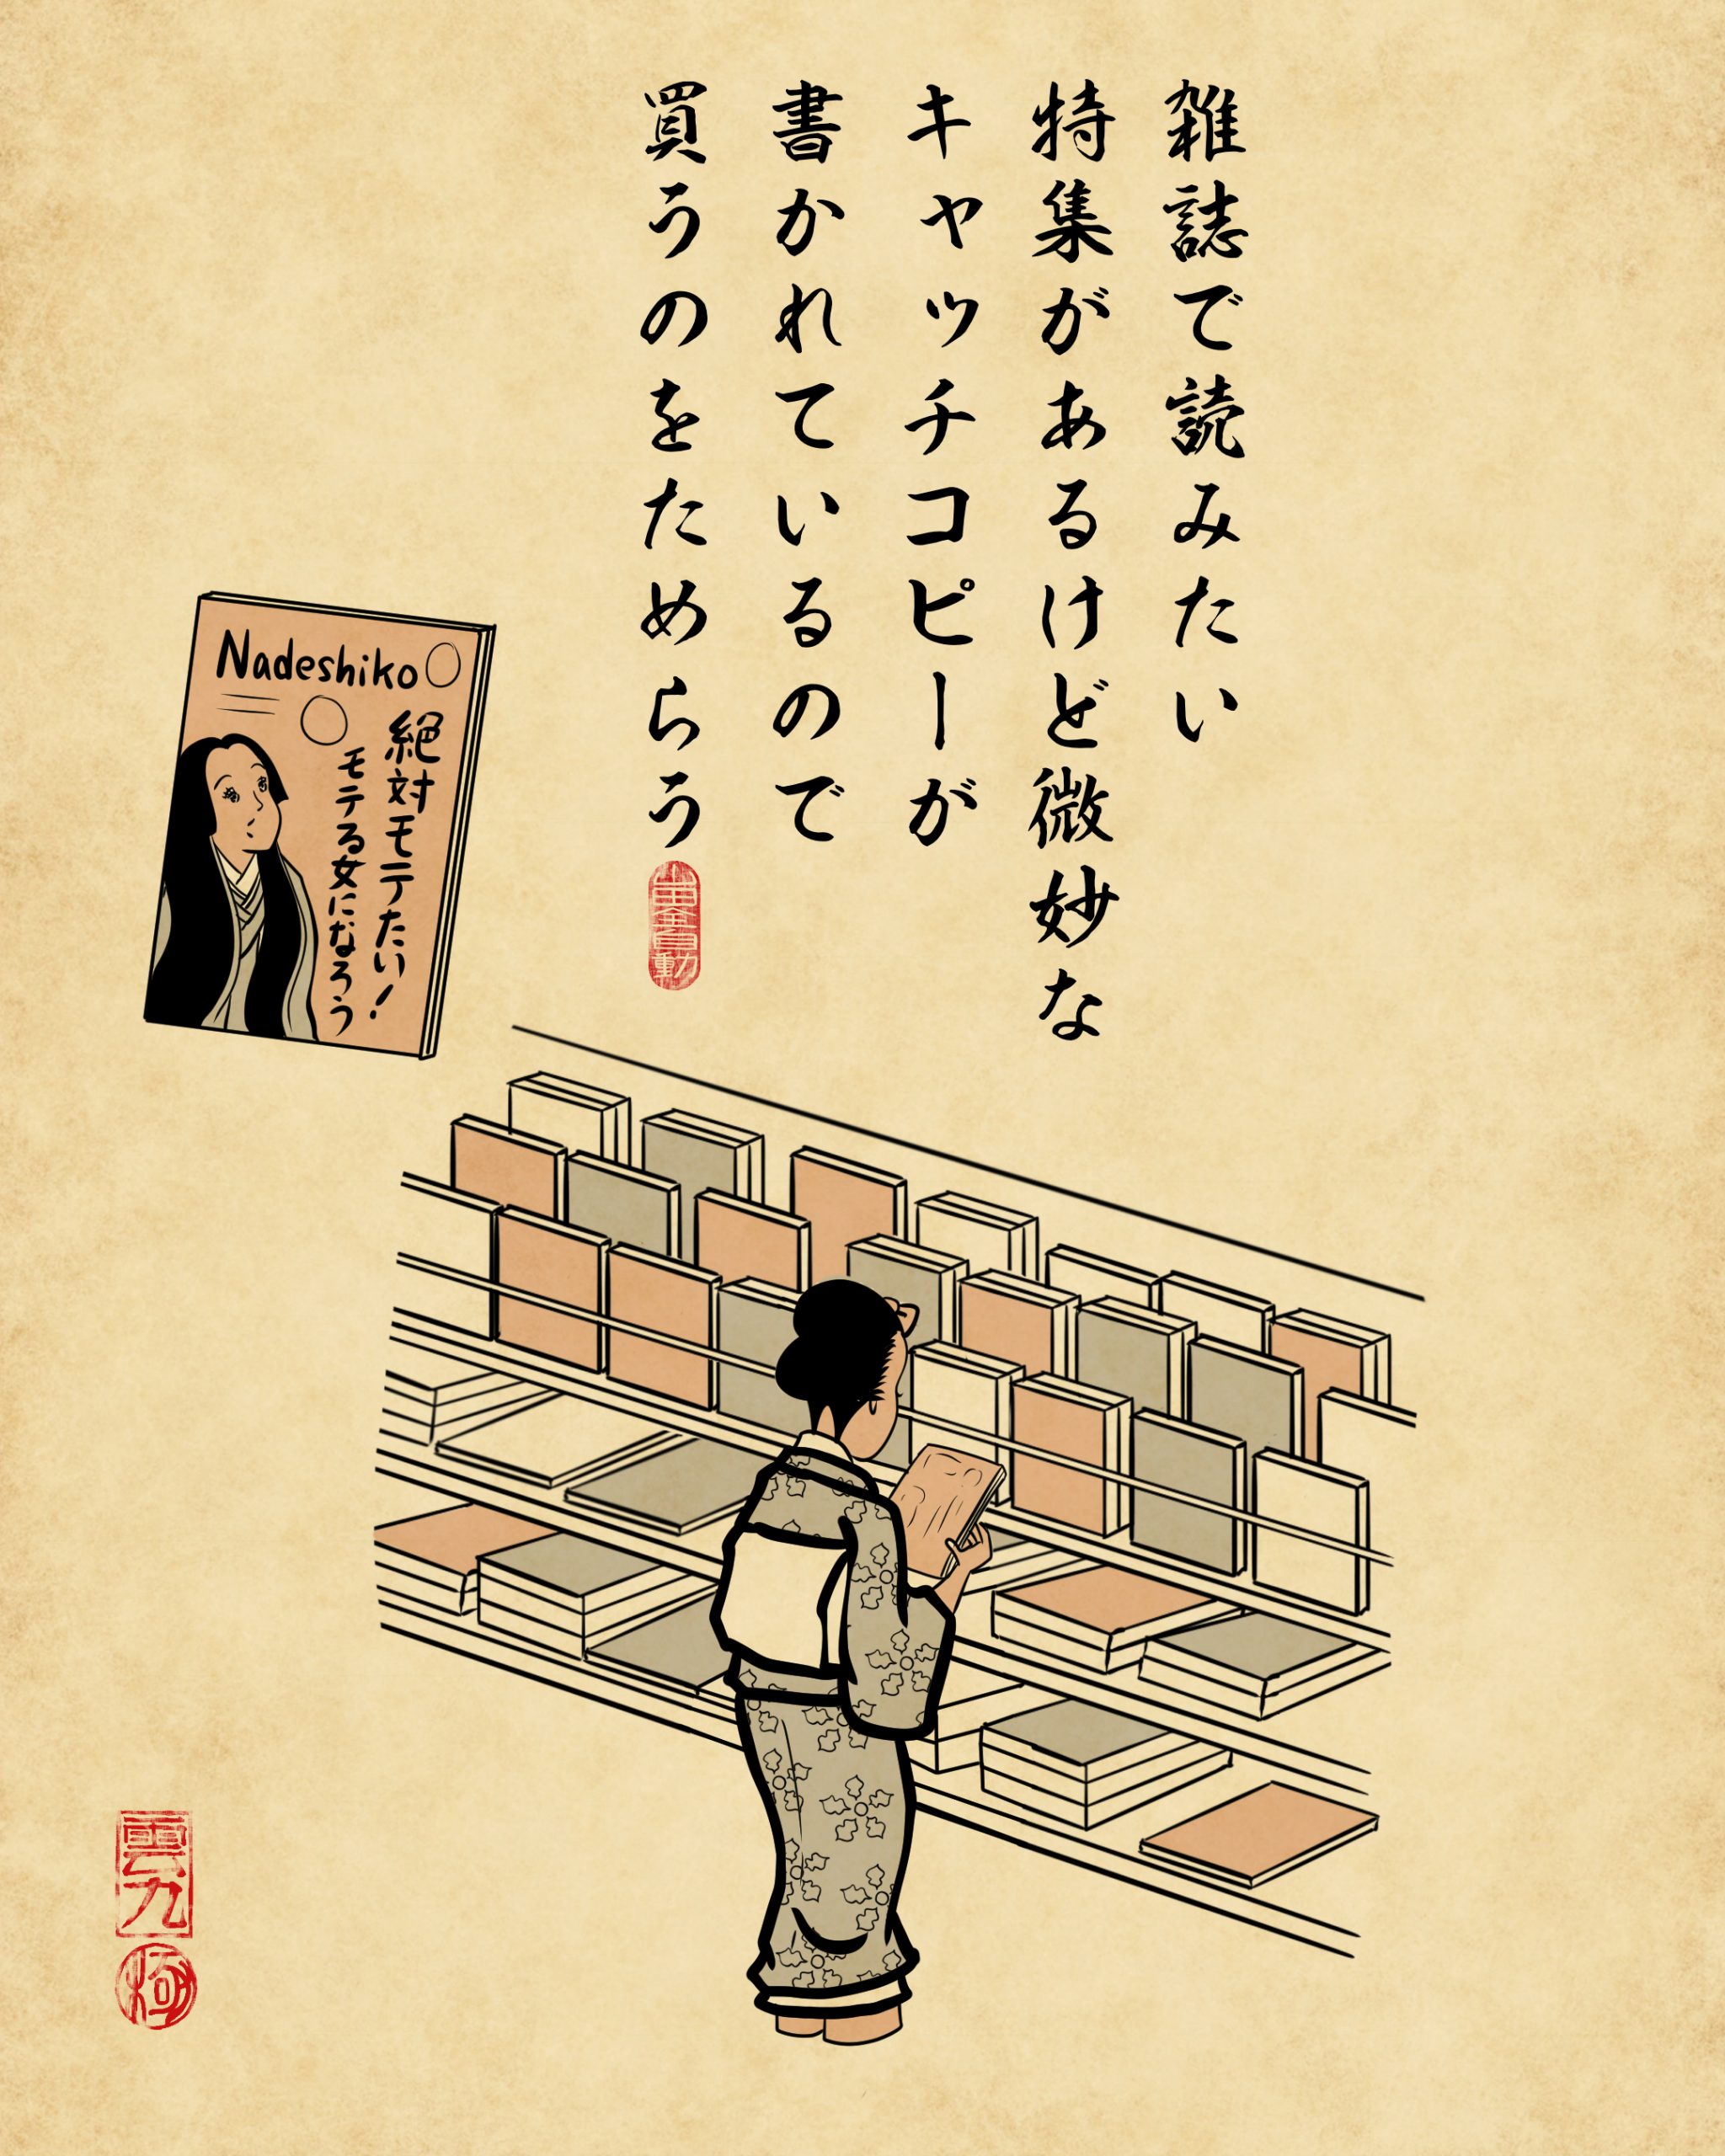 雑誌で読みたい
特集があるけど微妙な
キャッチコピーが
書かれているので
買うのをためらう
山田全自動
Nadeshiko
絶対モテたい!
モテる女になろう
雲九
極